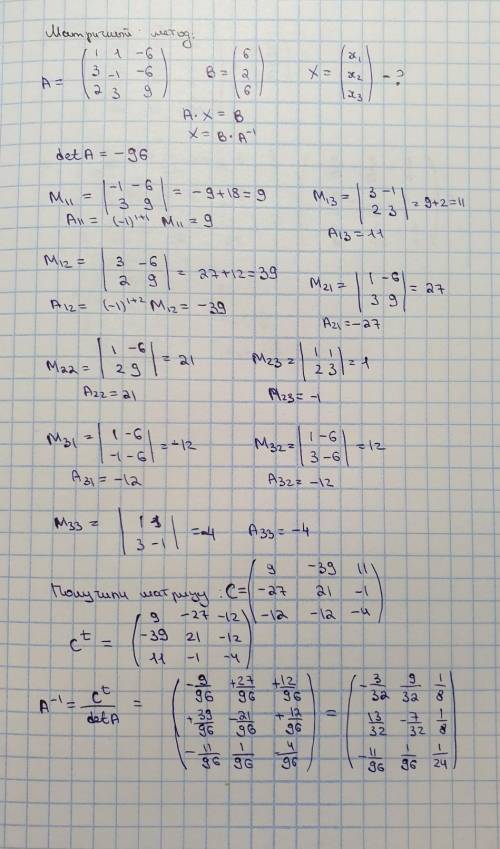 Матричный метод:
A = ( 1 1 -6 ; 3 -1 -6 ; 2 3 9 ) B = ( 6 ; 2 ; 6 ) X = ( x₁ ; x₂ ; x₃ ) - ?
A · X = B
X = B · A⁻¹
det A = -96
M₁₁ = | -1 -6 ; 3 9 | = -9+18=9
A₁₁ = (-1)¹⁺¹ M₁₁ = 9
M₁₃ = | 3 -1 ; 2 3 | = 9+2=11
A₁₃ = 11
M₁₂ = | 3 -6 ; 2 9 | = 27+12=39
A₁₂ = (-1)¹⁺² M₁₂ = -39
M₂₁ = | 1 -6 ; 3 9 | = 27
A₂₁ = -27
M₂₂ = | 1 -6 ; 2 9 | = 21
A₂₂ = 21
M₂₃ = | 1 1 ; 2 3 | = 1
A₂₃ = -1
M₃₁ = | 1 -6 ; -1 -6 | = -12
A₃₁ = -12
M₃₂ = | 1 -6 ; 3 -6 | = 12
A₃₂ = -12
M₃₃ = | 1 1 ; 3 -1 | = -4 A₃₃ = -4
Получили матрицу: C = ( 9 -39 11 ; -27 21 -1 ; -12 -12 -4 )
Cᵗ = ( 9 -27 -12 ; -39 21 -12 ; 11 -1 -4 )
A⁻¹ = Cᵗ/detA = ( -9/96 +27/96 +12/96 ; +39/96 -21/96 +12/96 ; -11/96 1/96 4/96 ) = ( -3/32 9/32 1/8 ; 13/32 -7/32 1/8 ; -11/96 1/96 1/24 )